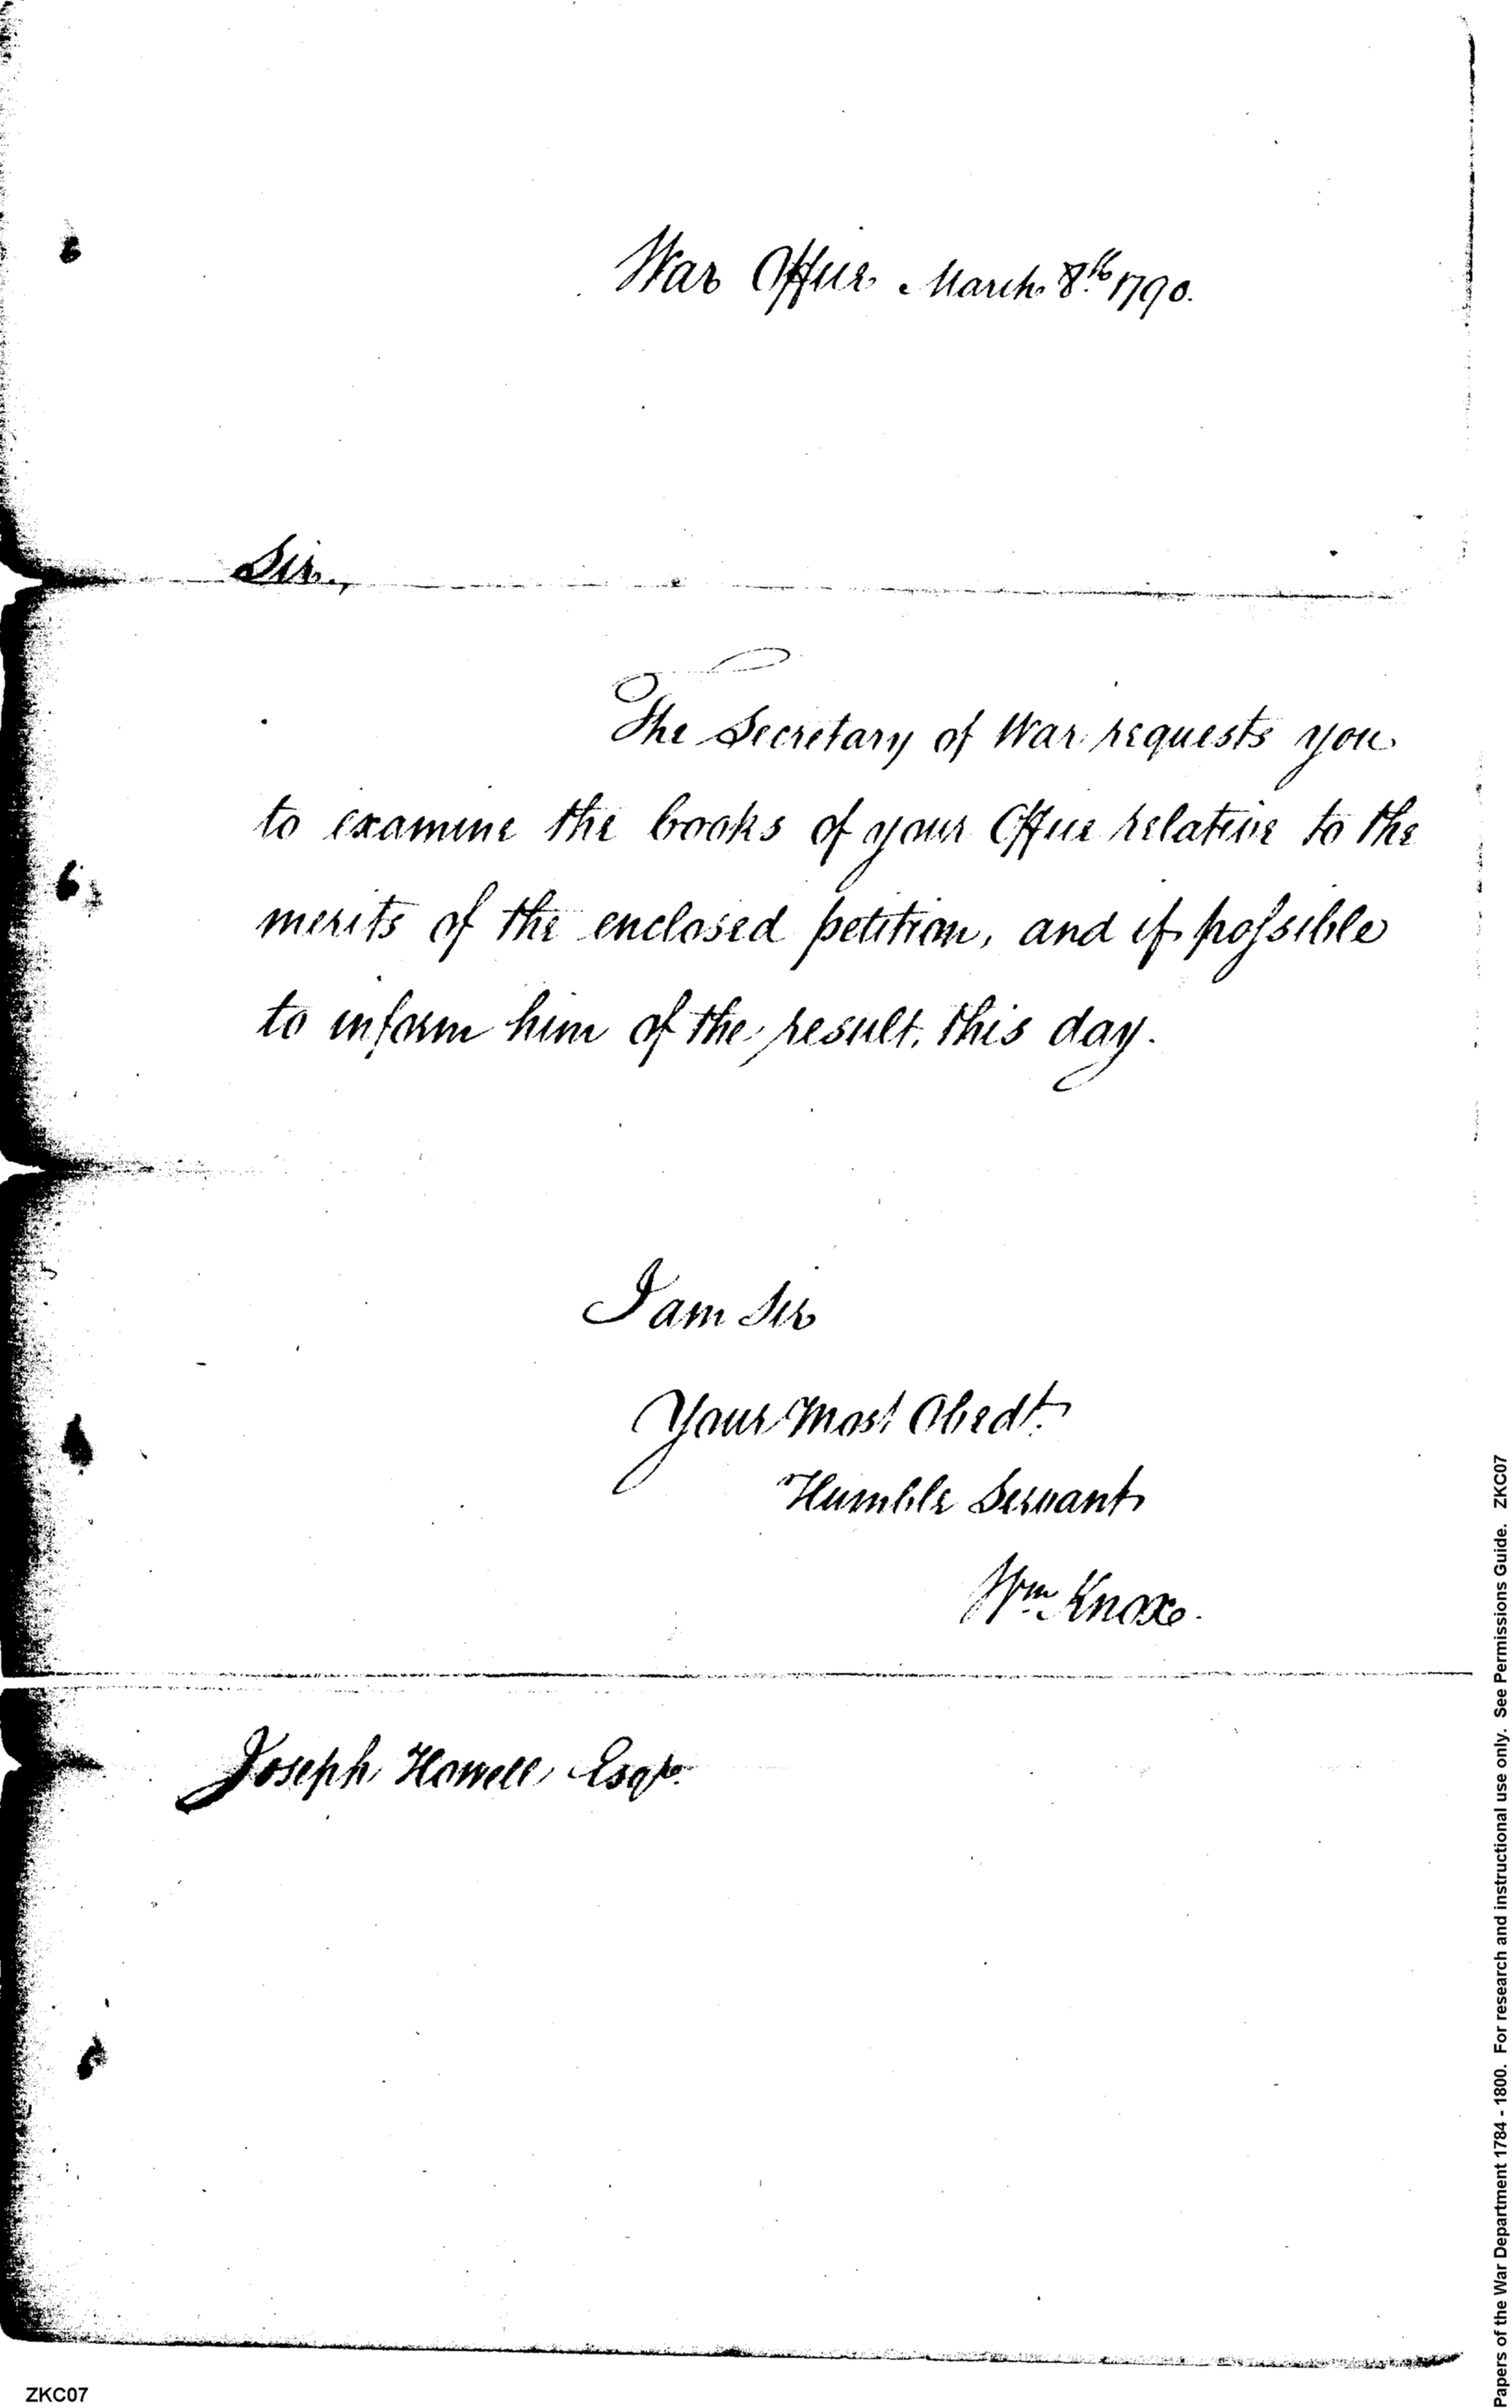 War Office March 8th 1790.
Sir,
The Secretary of War requests you
to examine the books of your Office relative to the
merits of the enclosed petition, and if possible
to inform him of the result, this day.
I am Sir
Your Most Obedt.
Humble Servant
Wm Knox.
Joseph Howell Esqr.
ZKC07
Papers of the War Department 1784 - 1800. For research and instructional use only. See Permissions Guide. ZKC07